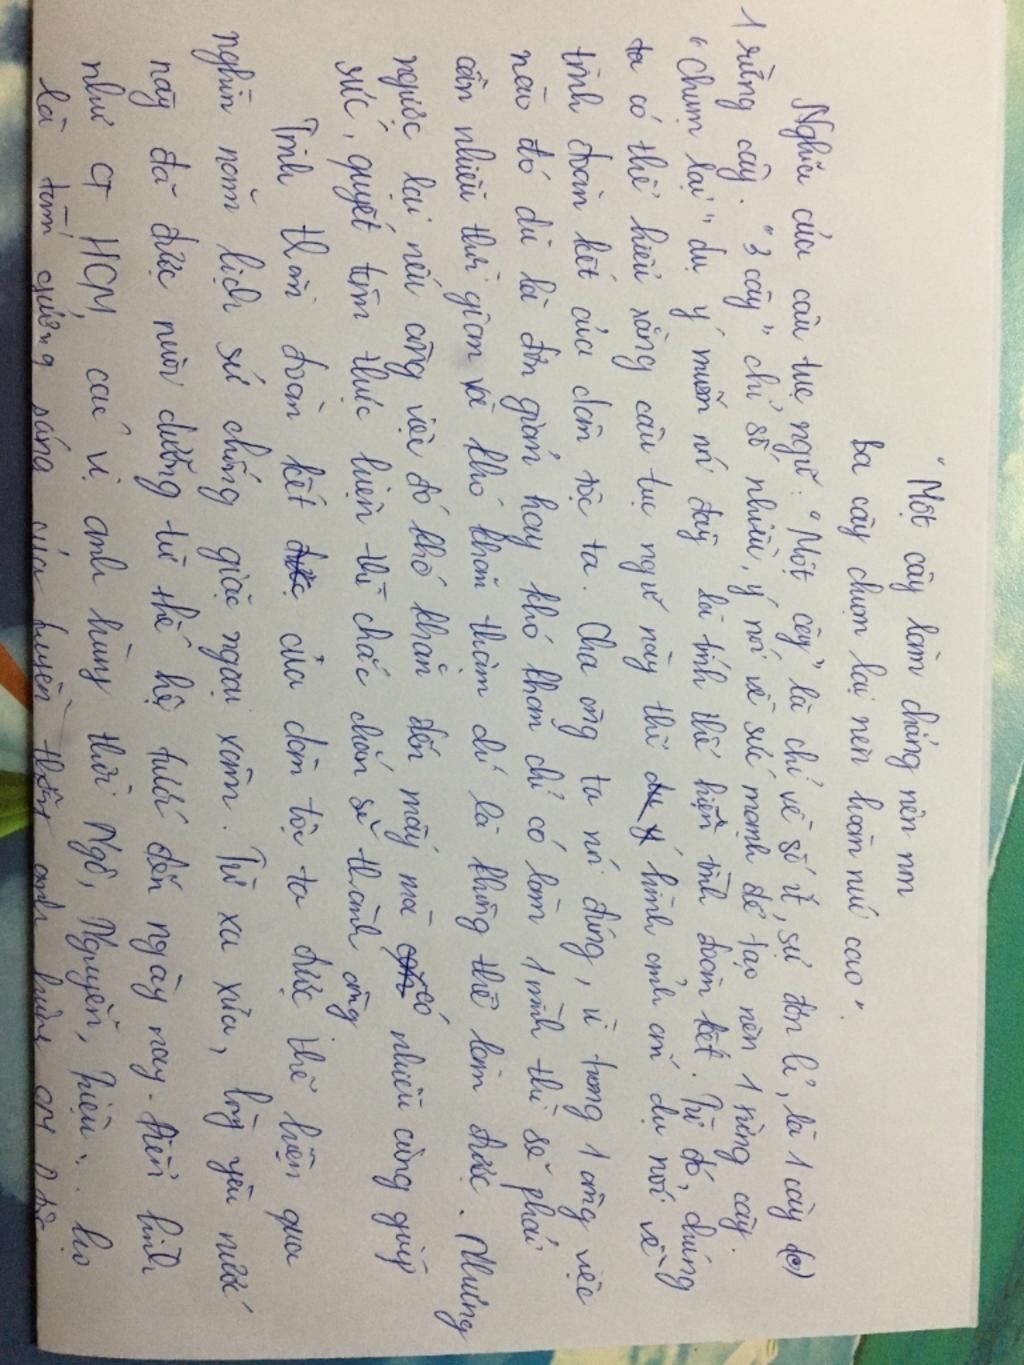 "Một cây làm chẳng nên nm
Ba cây chụm lại nên hòn núi cao".
Nghĩa của câu tục ngữ: "Một cây" là chỉ về số ít, sự đơn lẻ, là 1 cây (c)
1 rừng cây. "3 cây" chỉ số nhiều, ý nói về sức mạnh để tạo nên 1 rừng cây.
"Chụm lại" dụ ý muốn nói đây là tính thể hiện tình đoàn kết. Từ đó, chúng
ta có thể hiểu rằng câu tục ngữ này thì hình ảnh ẩn dụ nói về
tình đoàn kết của dân tộc ta. Cha ông ta nói đúng, vì trong 1 công việc
nào đó dù là đơn giản hay khó khăn chỉ có làm 1 mình thì sẽ phải
cần nhiều thời gian và khó khăn thậm chí là không thể làm được. Nhưng
ngược lại nếu công việc đó khó khăn đến mấy mà có nhiều cùng góp
sức, quyết tâm thực hiện thì chắc chắn sẽ thành công
Tinh thần đoàn kết của dân tộc ta được thể hiện qua
nghìn năm lịch sử chống giặc ngoại xâm. Từ xa xưa, lòng yêu nước
này đã được nuôi dưỡng từ thế hệ trước đến ngày nay. Điển hình
như CT HCM, các vị anh hùng thời Ngô, Nguyễn, họ
là tấm gương sáng của truyền thống anh hùng